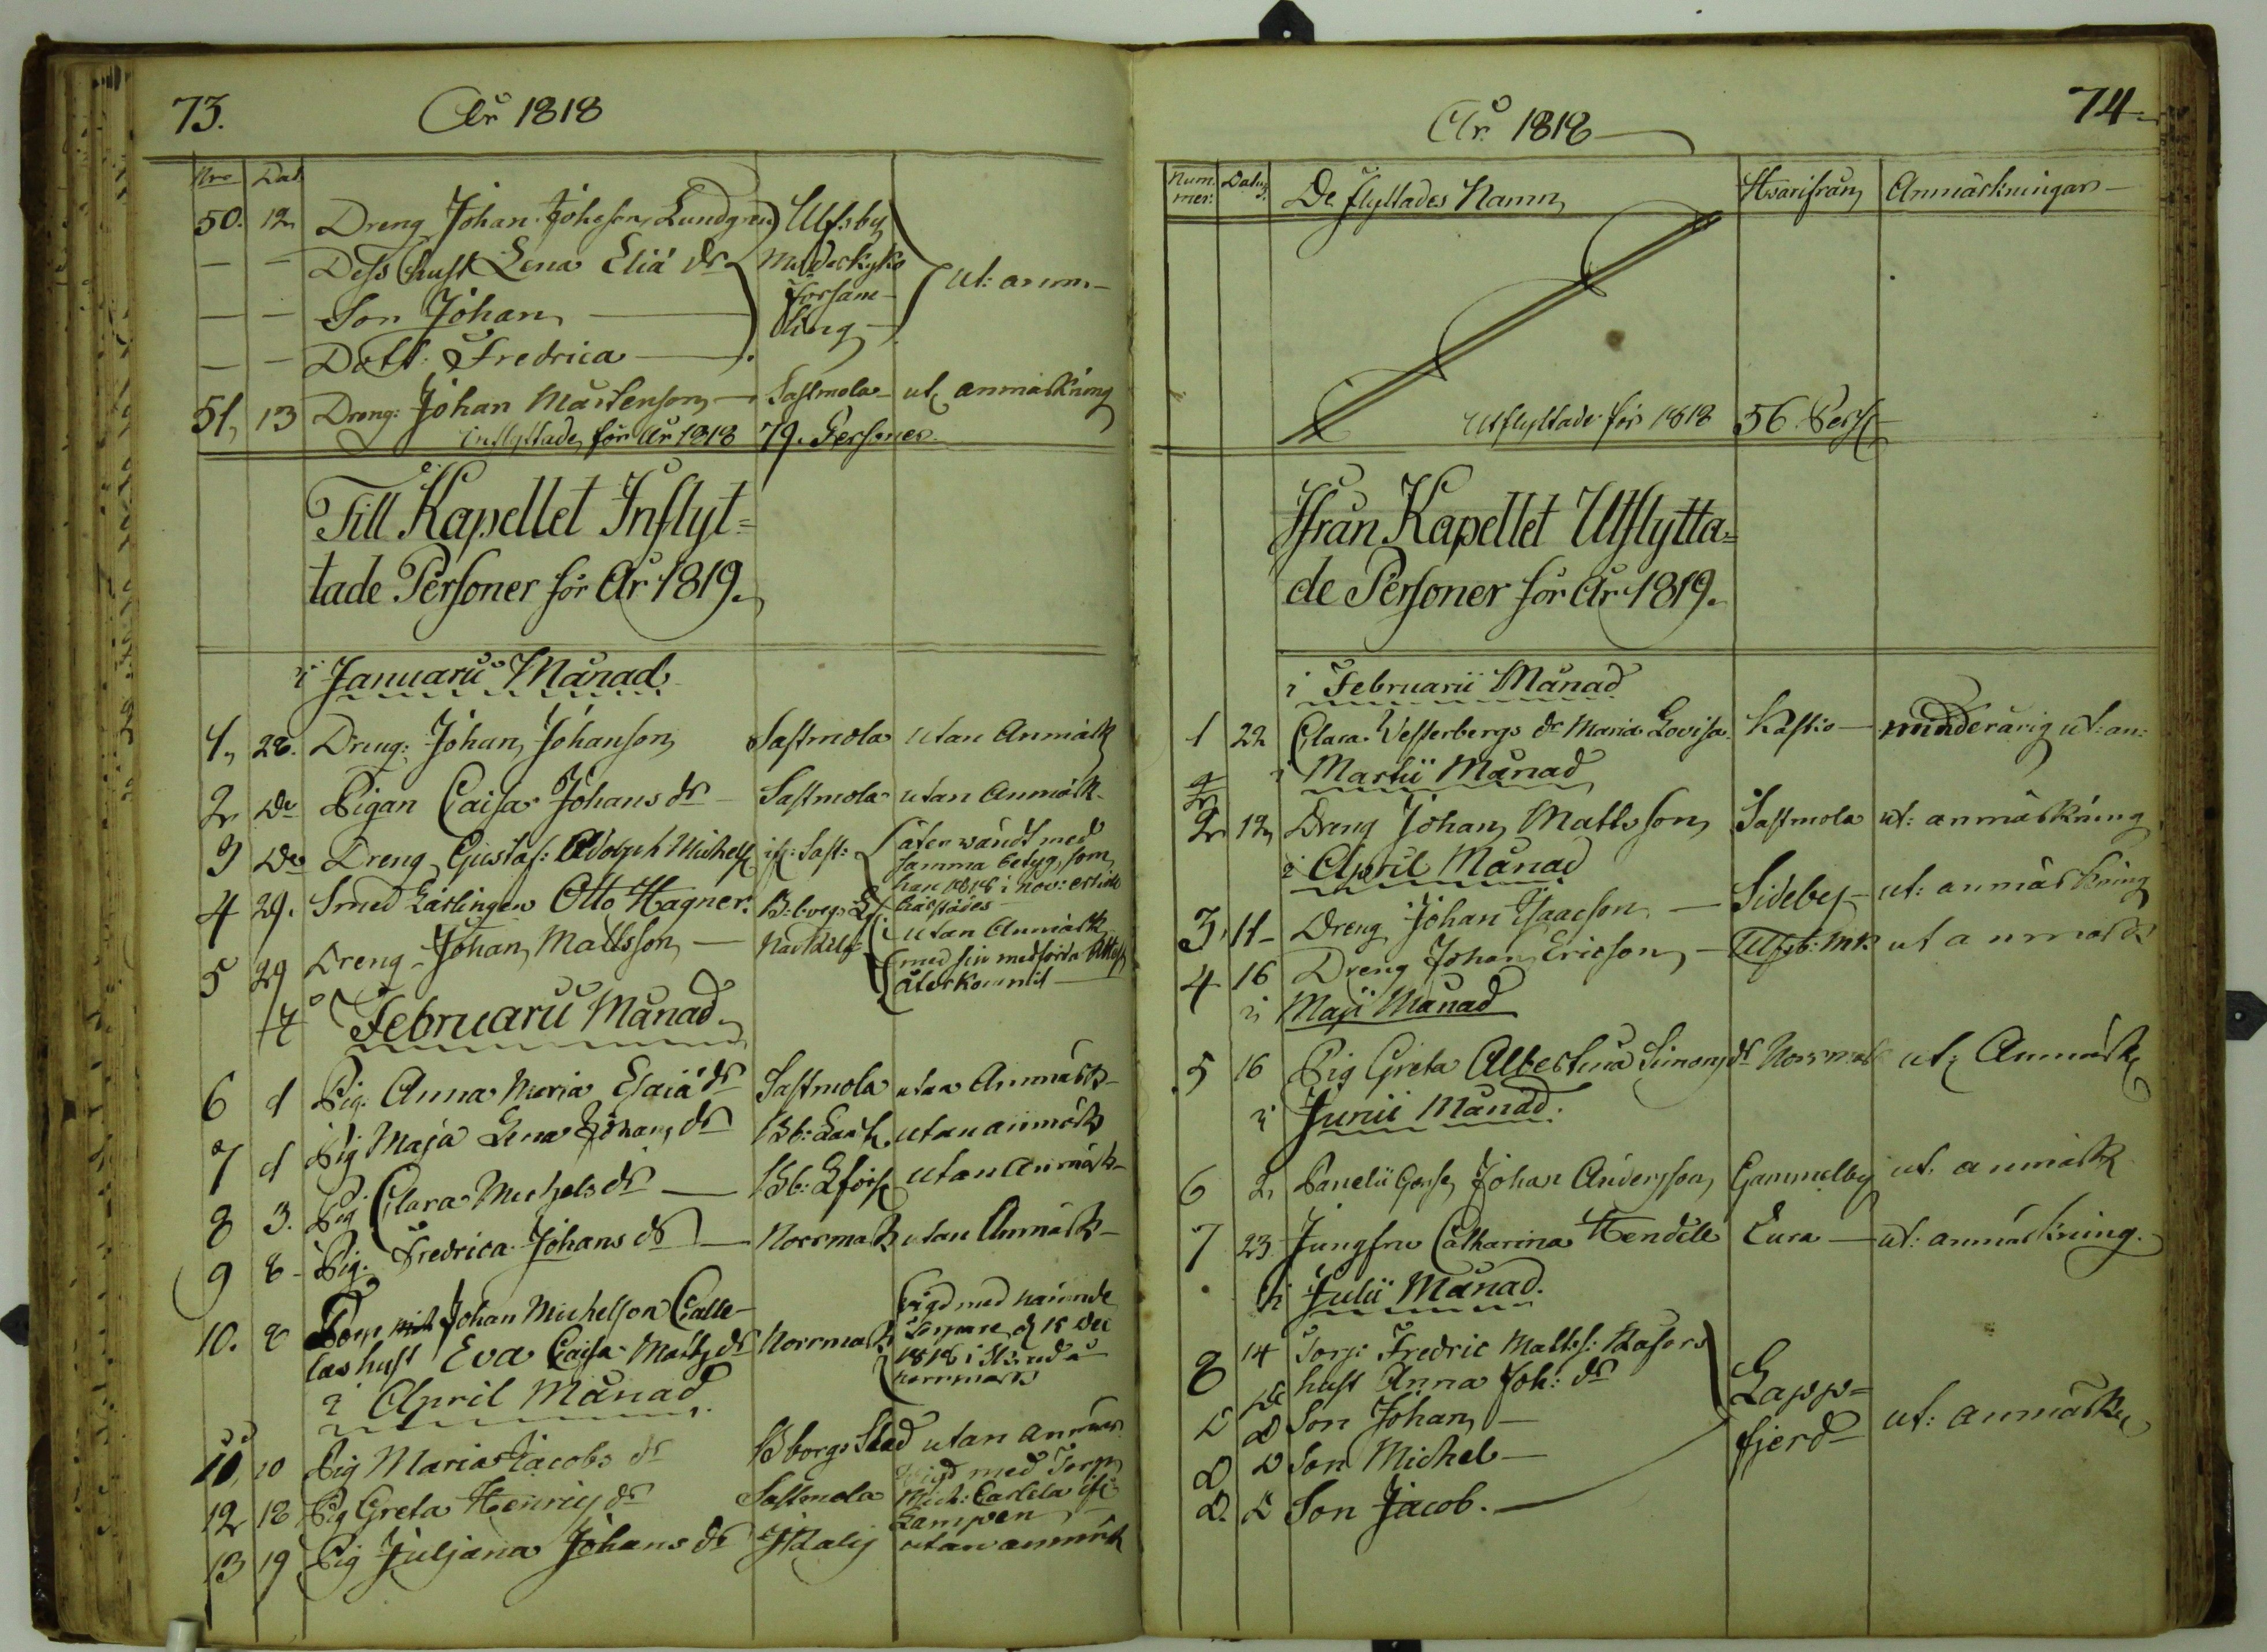 73.
År 1818
Nro Dat
50. 12 Dreng Johan Johsson Lundgren Ulfsby
— — Dess hust Lena Eliæ dr
— — Son Johan försam- ut: anm—
— — Dott: Fredrica — ling
51, 13 Dreng: Johan Mårtenson — Sastmola ut anmärkning
inflyttade för År 1818 79. Personer.
Till Kapellet Inflyt=
tade Personer för År 1819.
i Januarii Månad
1, 28. Dreng: Johan Johanson Sastmola utan Anmärk
2 Do Pigan Caisa Johans dr Sastmola utan Anmärk
3 Do Dreng Gustaf: Adolph Michelss if: Sast: åter vändt med
samma betyg, som
han 1818 i Nov: erhöll
härstädes
4 29. Smed Lärlingen Otto Hagner. B:borgs utan Anmärk
5 29 Dreng Johan Mattsson — med sin medförda Attest
återkommit —
i Februarii Månad
6 1 Pig. Anna Maria Esaiæ dr Sastmola utan Anmärk
7 1 Pig Maja Lena Johans dr Bb: utan anmärk
8 3. Pig Clara Michels dr — Bb: utan Anmärk
9 8 Pig. Fredrica Johans dr — Norrmark utan Anmärk
10. 8 Torp Johan Michelson Calle-
las hust Eva Caisa Matts dr Norrmark vigd med nämnde
Torpare d 15 Dec
1818 i
Norrmark
i April Månad
11, 10 Pig Maria Jacobs dr B borgs Stad utan anmär
12 18 Pig Greta Henrics dr Sastmola vigd med Torp
Mich: ifr
Lampen
13 19 Pig Juljana Johans dr utan anmärk
74.
År 1818
Num-mer. Datum De flyttades Namn Hvarifrån Anmärkningar
Utflyttade för 1818 56. Pers
Ifrån Kapellet Utflytta=
de Personer för År 1819.
i Februarii Månad
1 22 Clara Vesterbergs dr Maria Lovisa Kastio — minderårig ut: an:
i Martii Månad
2 12 Dreng Johan Mattsson Sastmola ut: anmärkning
i April Månad
3, 11 Dreng Johan Isaacson — Sideby ut: anmärkning
4 16 Dreng Johan Ericson — Ulfsb: MK ut anmärk
i Maji Månad
5 16 Pig Greta Albertina Simons dr Norrmark ut, Anmärk
i Junii Månad.
6 2 Johan Andersson Gammelby ut. anmärk
7 23 Jungfru Catharina Hendele Eura — ut: anmärkning.
i Julii Månad.
8 14 Torp: Fredric Mattss: Kasors
D hust Anna Joh: dr Lapp=
D D Son Johan — fjerd ut: anmärk
D D Son Michel —
D. D Son Jacob. —